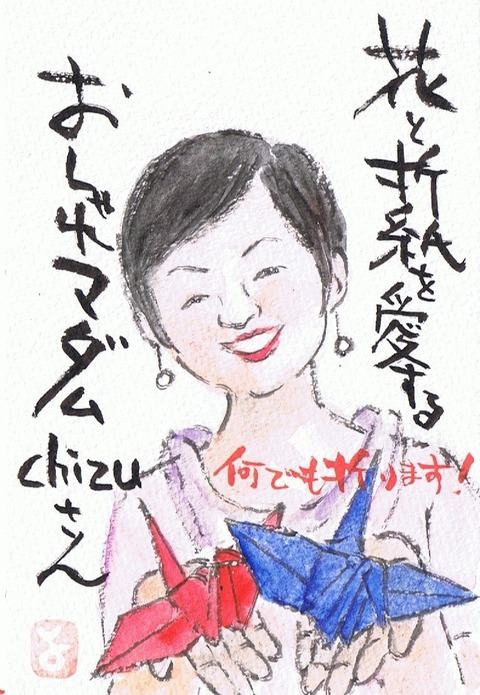 花と折紙を愛する
おしゃれマダム
chizuさん
何でも折ります!